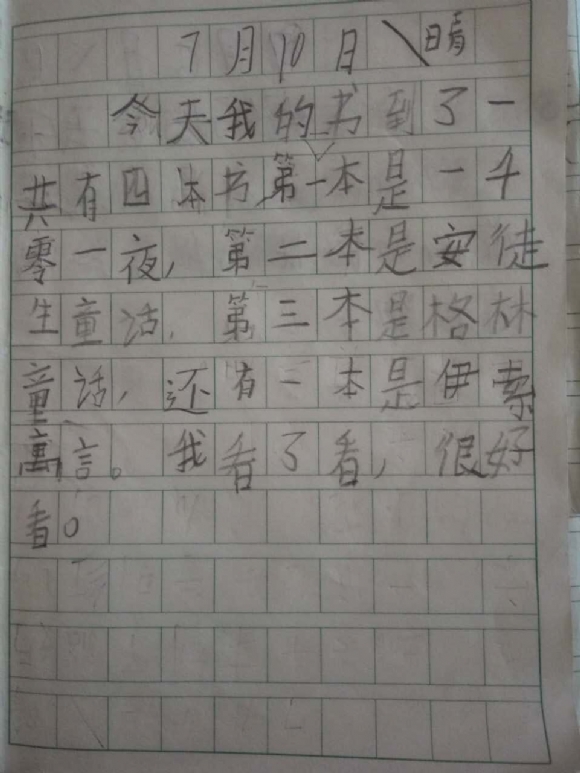 7月10日 \晴
今天我的书到了一
共有四本书第一本是一千
零一夜，第二本是安徒
生童话，第三本是格林
童话，还有一本是伊索
寓言。我看了看，很好
看。